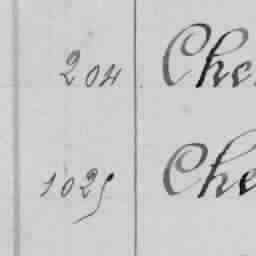 204 Che
1025 Che